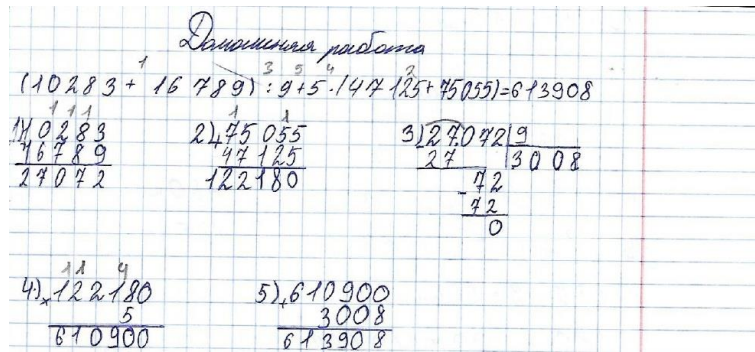 Домашняя работа
1 3 5 4 2
(10283 + 16789) : 9 + 5 · (47125 + 75055) = 613908
1 1 1
1) + 10283
16789
27072
1 1
2) + 75055
47125
122180
3) - 27072 | 9
27 | 3008
- 72
72
0
1 1 4
4) × 122180
5
610900
5) + 610900
3008
613908